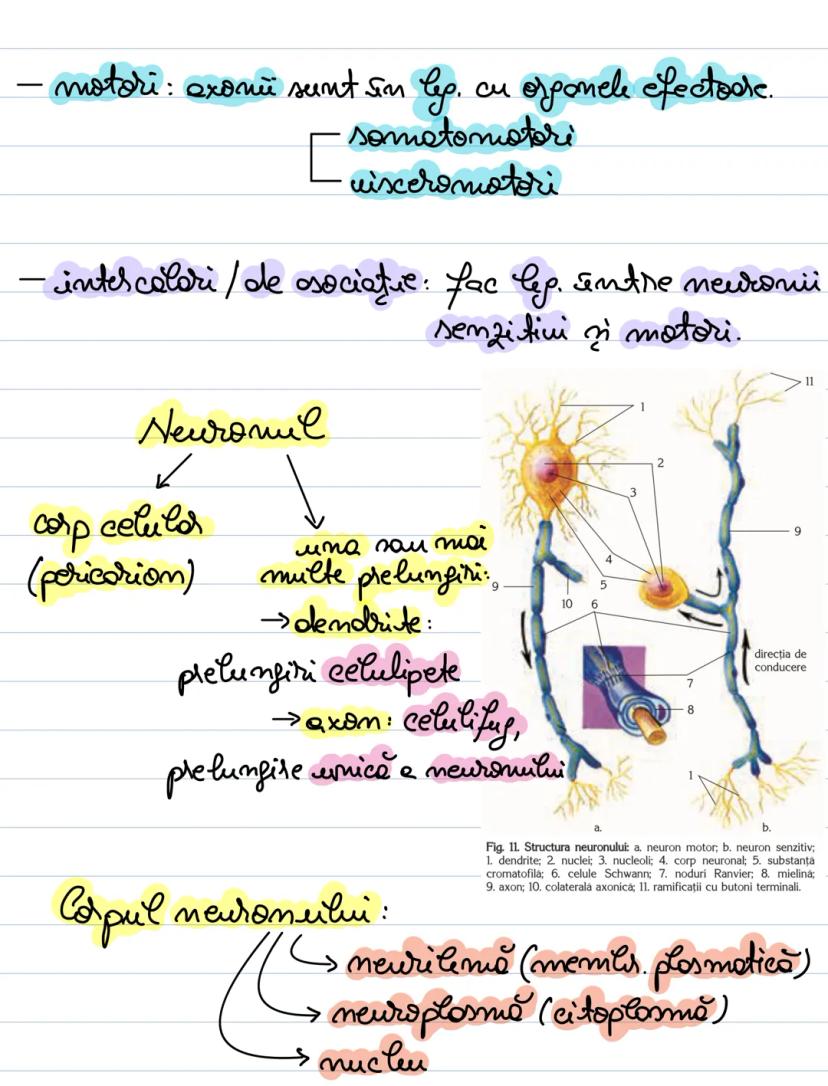 – motori: axonii sunt în leg. cu organele efectoare.
somatomotori
visceromotori
– intercalari / de asociație: fac leg. între neuronii
senzitivi și motori.
Neuronul
corp celular
(pericarion)
una sau mai
multe prelungiri:
→ dendrite:
prelungiri celulipete
→ axon: celulifug,
prelungire unică a neuronului
11
1
2
3
9
4
5
9
10
6
direcția de
conducere
7
8
1
a.
b.
Fig. 11. Structura neuronului: a. neuron motor; b. neuron senzitiv;
1. dendrite; 2. nuclei; 3. nucleoli; 4. corp neuronal; 5. substanță
cromatofilă; 6. celule Schwann; 7. noduri Ranvier; 8. mielina;
9. axon; 10. colaterală axonică; 11. ramificații cu butoni terminali.
Corpul neuronului:
→ neurilemă (membr. plasmatică)
→ neuroplasmă (citoplasmă)
→ nucleu